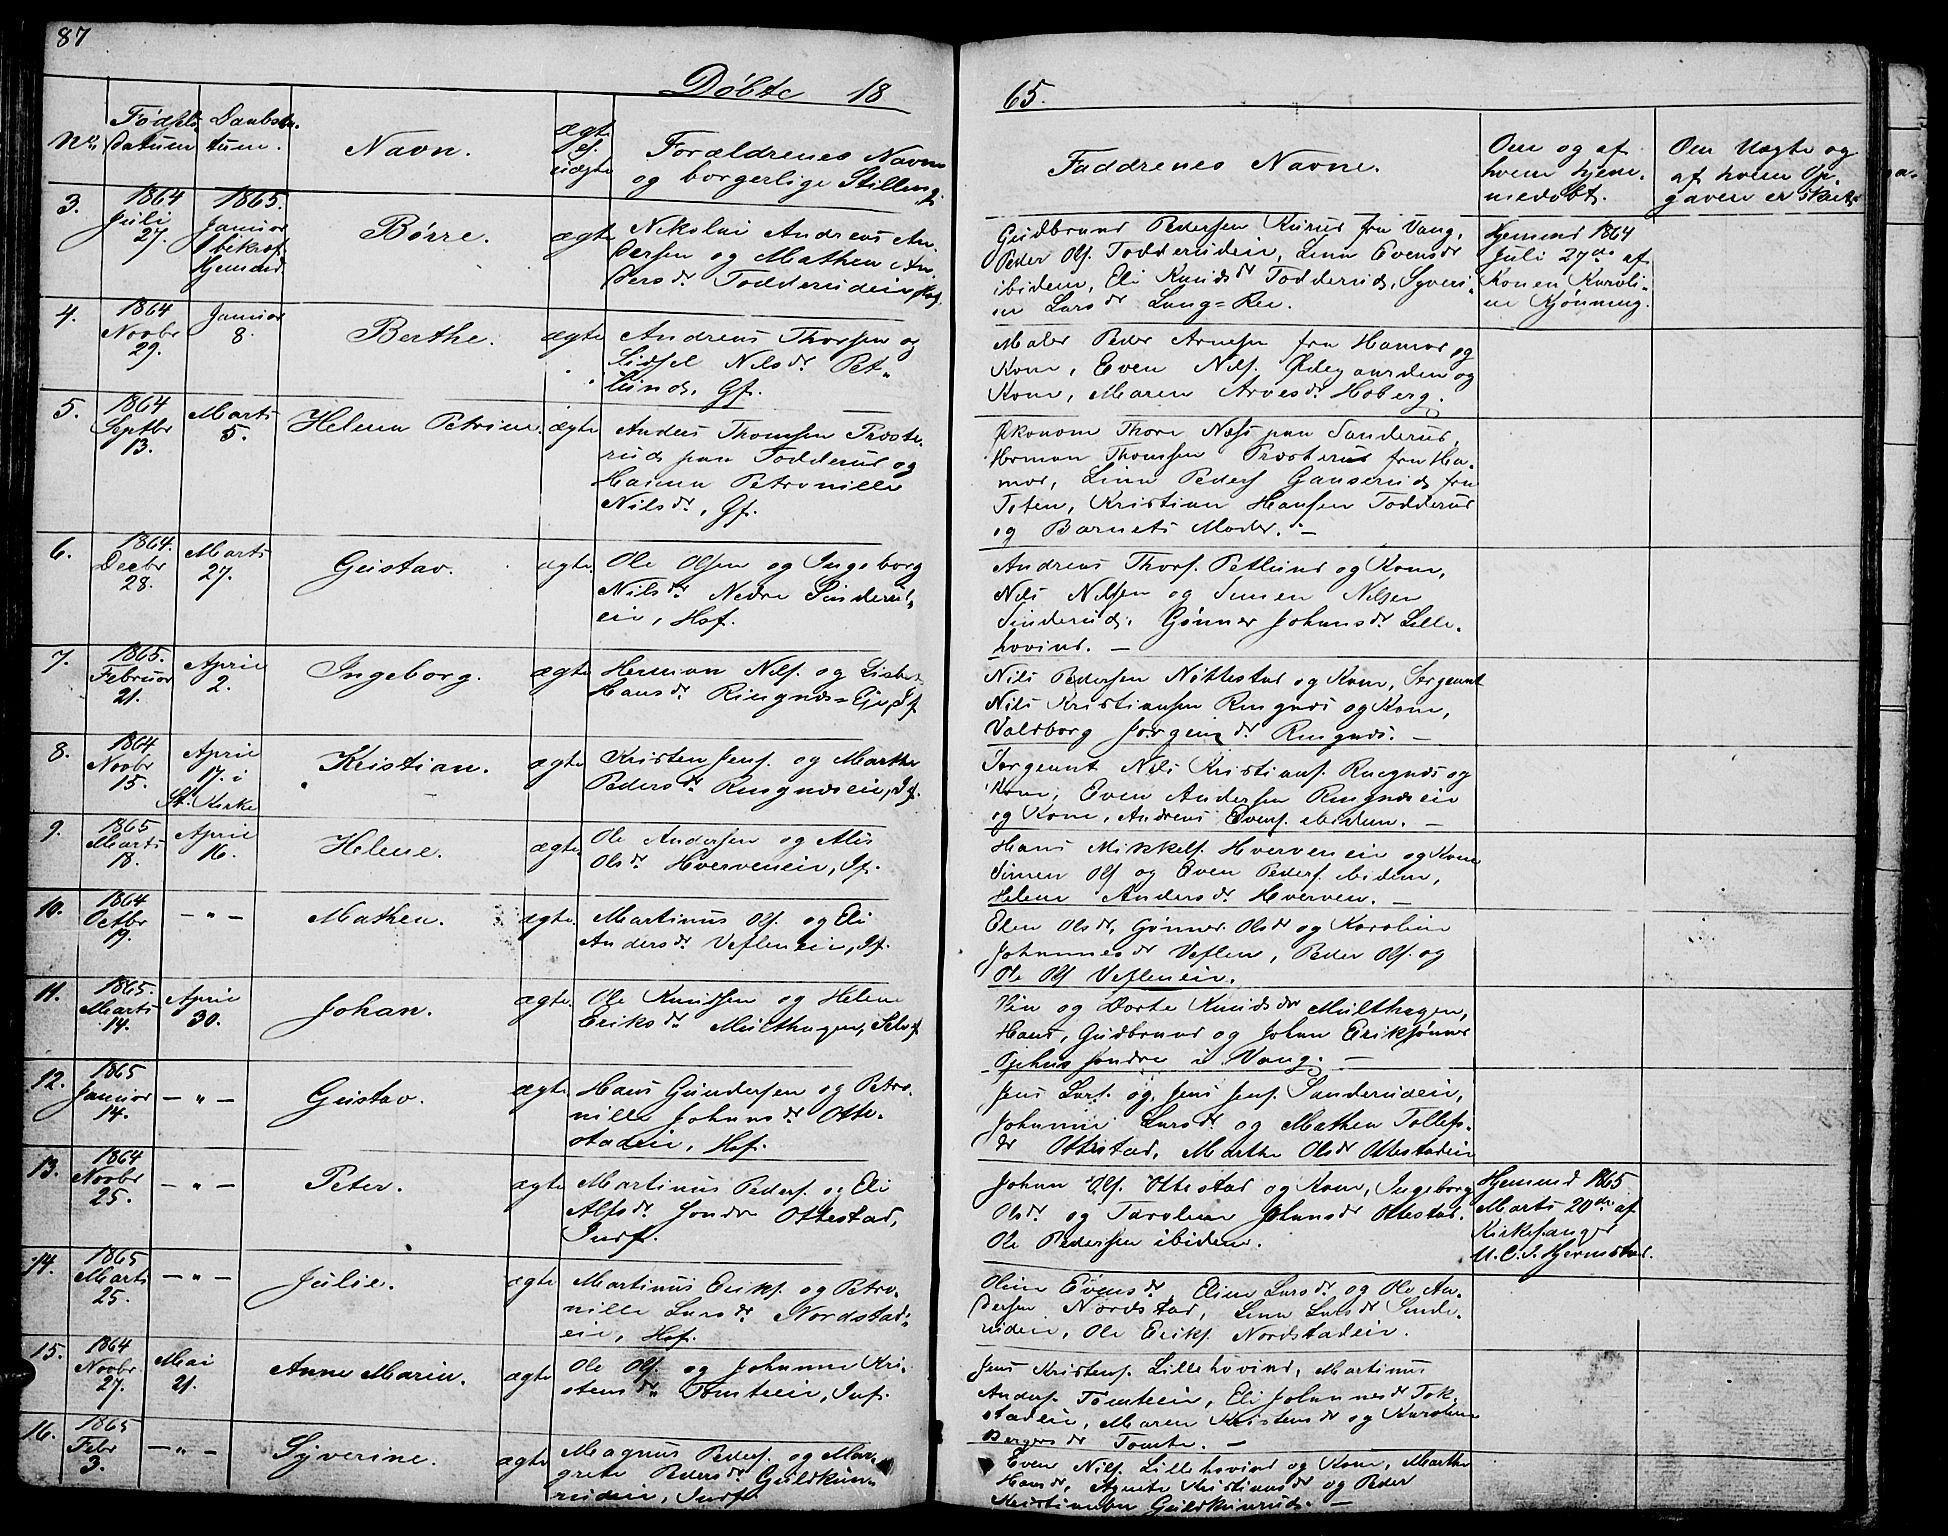 87
Döbte 18
65.
No.
Fødsels
Datum
Daabsda
tum.
Navn.
ægte
el.
uægte
Forældrenes Navne
og borgerlige Stilling.
Faddrenes Navne.
Om og af
hvem hjem-
medøbt.
Om Uægte og
af hvem Op-
gaven er skeet.
3.
1864
Juli
27.
1865.
Januar
1 bekræf.
hjemmed.
Børre.
ægte
Nikolai Andreas An-
dersen og Mathea An-
ders dr. Todderudeie,
Gudbrand Pedersen Kurud fra Vang,
Peder Ols. Todderudeie, Lina Evensdr
ibidem, Eli Knuds dr Todderud, Syveri-
ne Lars dr Lang=Ree.
Hjemmed 1864
Juli 27de af
Konen Karoli-
ne Kjønning.
4.
1864
Novbr
29.
Januar
8.
Berthe.
ægte
Andreas Thorsen og
Sidsel Nils dr. Pet-
lund, Gf.
Maler Peder Arnesen fra Hamar og
Kone, Even Nils. Ødegaarden og
Kone, Maren Arnes dr. Hoberg.
5.
1864
Septbr
13.
Marts
5.
Helena Petrine.
ægte
Anders Thomsen Præste-
rud paa Todderud og
Hanna Petronille
Nils dr., Gf.
Økonom Thore Næss paa Sanderud,
Herman Thomsen Præsterud fra Ha-
mar, Lina Peders Ganserud fra
Toten, Kristian Hansen Todderud
og Barnets Moder. —
6.
1864.
Decbr
28.
Marts
27.
Gustav.
ægte
Ole Olsen og Ingeborg
Nils dr. Nedre Sinderud-
eie, Hsf.
Andreas Thors. Petlund og Kone,
Nils Nilsen og Simen Nilsen
Sinderud, Gønner Johans dr. Lille-
hovind. —
7.
1865.
Februar
21.
April
2.
Ingeborg.
ægte
Herman Nils. og Lisbet
Hans dr Ringnæs=Eje, If.
Nils Pedersen Nøttestad og Kone, Sergeant
Nils Kristiansen Ringnæs og Kone,
Valborg Jørgens dr. Ringnæs. —
8.
1864.
Novbr
15.
April
17. i
St. Kirke
Kristian.
ægte
Kristen Jens. og Marthe
Peders dr. Ringnæseie, If.
Sergeant Nils Kristians. Ringnæs og
Kone, Even Andersen Ringnæseie
og Kone, Andreas Evens. ibidem. —
9.
1865
Marts
18.
April
16.
Helene.
ægte
Ole Andersen og Alis
Ols dr. Hverveneie, If.
Hans Mikkels. Hverveneie og Kone
Simen Ols og Even Peders. ibidem,
Helene Anders dr. Hverven. —
10.
1864
Octbr
19.
— " —
Mathea.
ægte
Martinus Ols. og Eli
Anders dr. Vefleneie, If.
Elen Ols dr, Gønner Ols dr og Karoline
Johannes dr Veflen, Peder Ols. og
Ole Ols Vefleneie.
11.
1865.
Marts
14.
April
30.
Johan.
ægte
Ole Knudsen og Helene
Eriks dr. Multhagen, Selvf
og Dorte Knuds dr Multhagen,
Hans, Gudbrand og Johan Eriksønner
Ophus søndre i Vang. —
12.
1865
Januar
14.
— " —
Gustav.
ægte
Hans Gundersen og Petro-
nille Johans dr Otte-
stadeie, Hsf.
Jens Lars. og Jens Jens. Sanderudeie,
Johanne Lars dr. og Mathea Tollefs-
dr Ottestad, Marthe Olsdr Ottestadeie
13.
1864
Novbr
25.
— " —
Peter.
ægte
Martinus Peders. og Eli
Alfs dr. Søndre Ottestad,
Inds.
Johan Ols. Ottestad og Kone, Ingeborg
Ols dr. og Karoline Johans dr Ottestad.
Ole Pedersen ibidem.
Hjemmed 1865
Marts 20de af
Kirkesanger
M. C. S. Hjermstad.
14.
1865
Marts
25.
— " —
Julie.
ægte
Martinus Eriks. og Petro-
nille Lars dr. Nordstad-
eie, Hsf.
Oline Evens dr, Eline Lars dr. og Ole An-
dersen Nordstad, Lina Lars dr Sande-
rudeie, Ole Eriks. Nordstadeie.
15.
1864
Novbr
27.
Mai
21.
Anne Marie.
ægte
Ole Ols. og Johanne Kri-
stens dr. Tomteeie, Inds.
Jens Kristens. Lillehovind, Martinus
Anders. Tomteeie, Eli Johannesdr Tok-
stadeie, Maren Kristens dr og Karoline
Bergers dr Tomte. —
16.
1865
Febr
3.
— " —
Syverine.
ægte
Magnus Peders. og Mar-
grete Peders dr. Guldkun-
rudeie, Inds.
Even Nils. Lillehovind og Kone, Marthe
Hansdr, Agnete Kristians dr og Peder
Kristiansen Guldkunrud. —